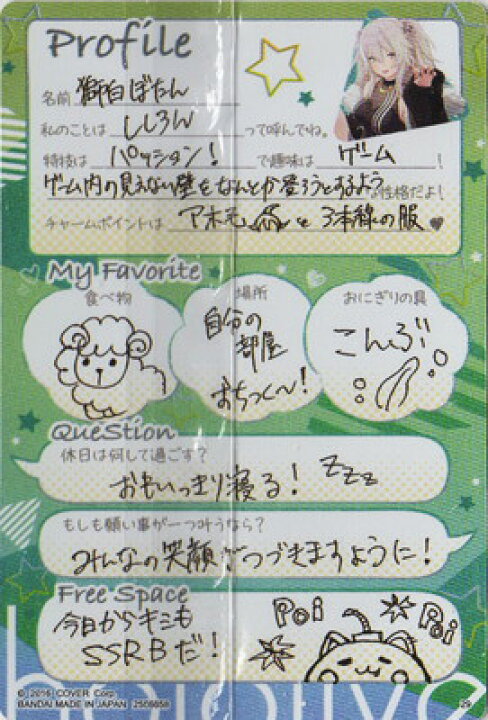 Profile
名前 獅白ぼたん
私のことは ししろん って呼んでね。
特技は パッション! で趣味は ゲーム !
ゲーム内の見えない壁をなんとか登ろうとするよう 性格だよ!
チャームポイントは アホ毛 と 3本線の服
My Favorite
食べ物
場所
自分の
部屋
おちつく~!
おにぎりの具
こんぶ
QueStion
休日は何して過ごす?
おもいっきり寝る! zzz
もしも願い事が一つ叶うなら?
みんなの笑顔がつづきますように!
Free Space
今日からキミも
SSRBだ!
Poi
Poi
© 2016 COVER Corp.
BANDAI MADE IN JAPAN 2508658
29
hololive